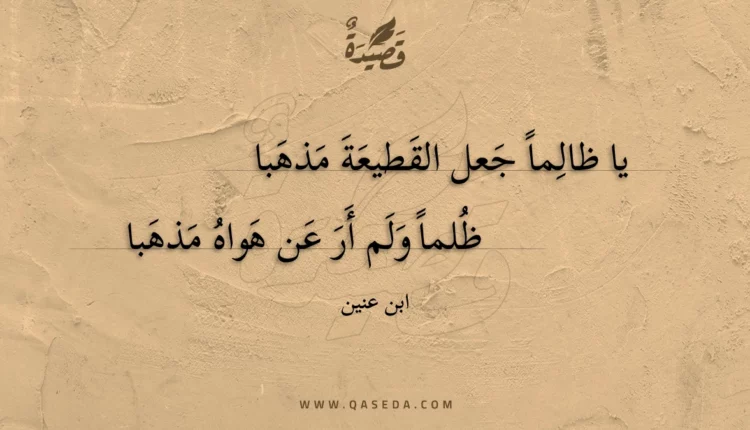 قَصِيدَةٌ
يا ظالِماً جَعل القَطيعَةَ مَذهَبا
ظُلماً وَلَم أَرَ عَن هَواهُ مَذهَبا
ابن عنين
WWW.QASEDA.COM